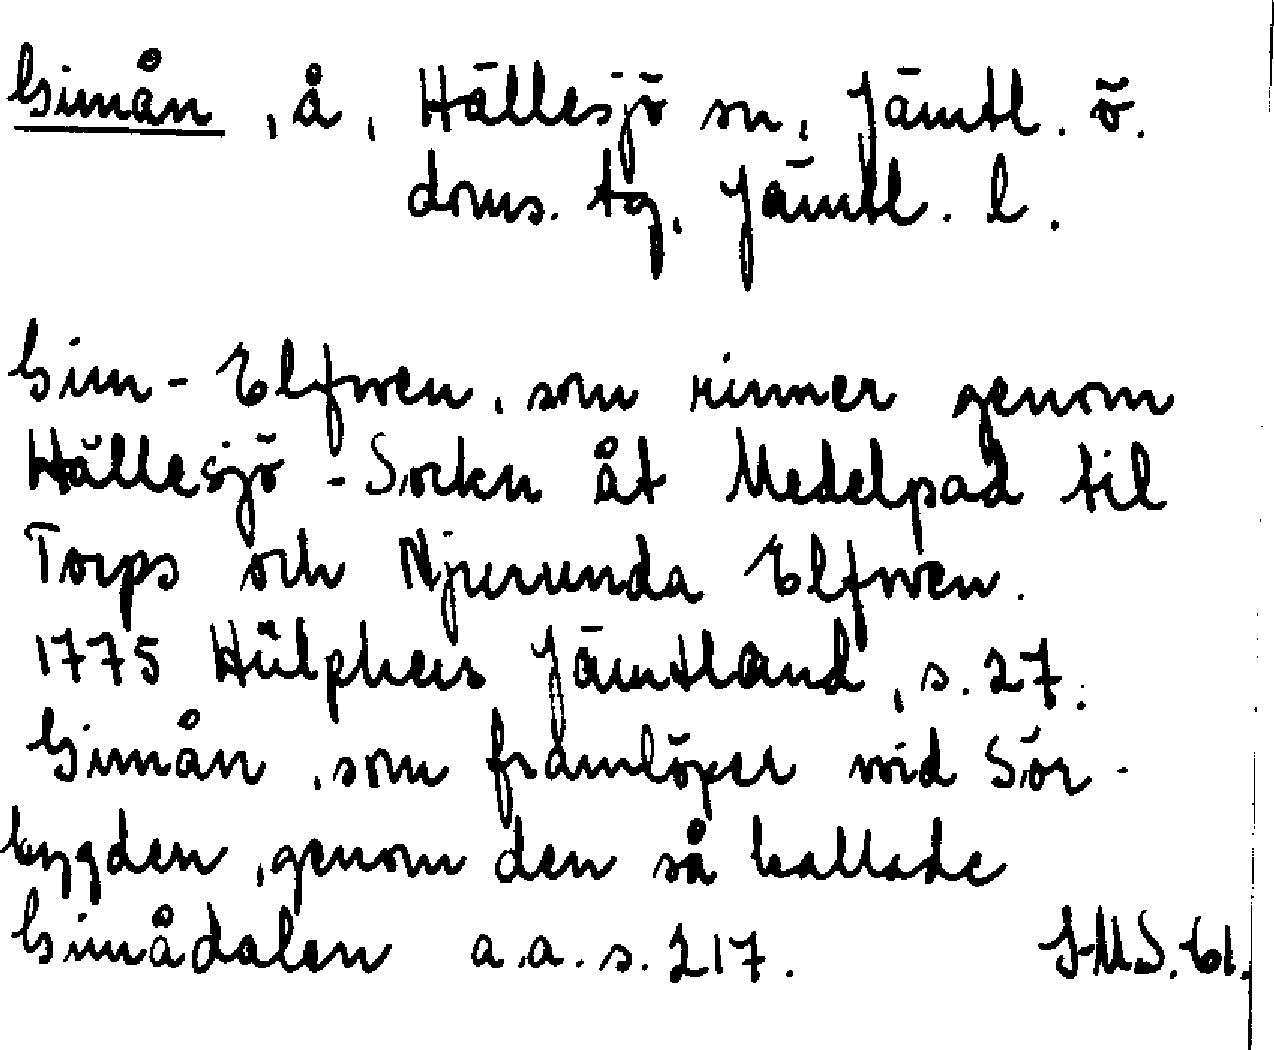 Gimån, å, Hällesjö sn, Jämtl. ö.
doms. tg, Jämtl. l.
Gim-Elfwen, som rinner genom
Hällesjö-Sockn åt Medelpad til
Torps och Njurunda Elfwen.
1775 Hülphers Jämtland, s. 27.
Gimån, som framlöper wid Sör-
bygden, genom den så kallade
Gimådalen a.a. s. 217.